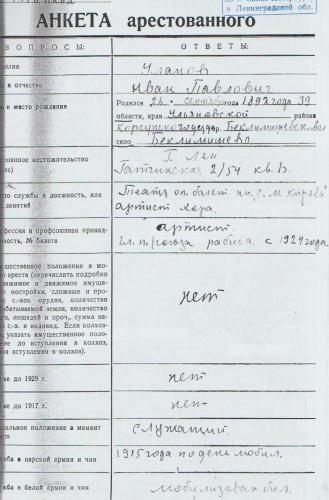 и Ленинградской обл.
АНКЕТА арестованного
ВОПРОСЫ:
ОТВЕТЫ:
милия
Уланов
и отчество
Иван Павлович
и место рождения
Родился 24. сентября 1892 года 39
области, края Ульяновской района
Беклемишевск. вол
село Беклемишево
стоянное местожительство
ес)
Г. Лен
Гатчинская 2/54 кв. 8.
сто службы и должность, или
занятий
Театр оп. балет им. С. М. Кирова
артист хора.
фессия и профсоюзная принад-
ность, № билета
артист.
союза рабиса. с 1924 года
щественное положение в мо-
т ареста (перечислить подробно
вижимое и движимое имуще-
постройки, сложные и про-
с.-хоз. орудия, количество
батываемой земли, количество
а, лошадей и проч., сумма на-
с.-х. и индивид. Если колхоз-
указать имущественное поло-
е до вступления в колхоз,
я вступления в колхоз)
нет
же до 1929 г.
нет
же до 1917 г.
нет
иальное положение в момент
ста
служащий.
жба в царской армии и чин
1915 года мобил.
жба в белой армии и чин